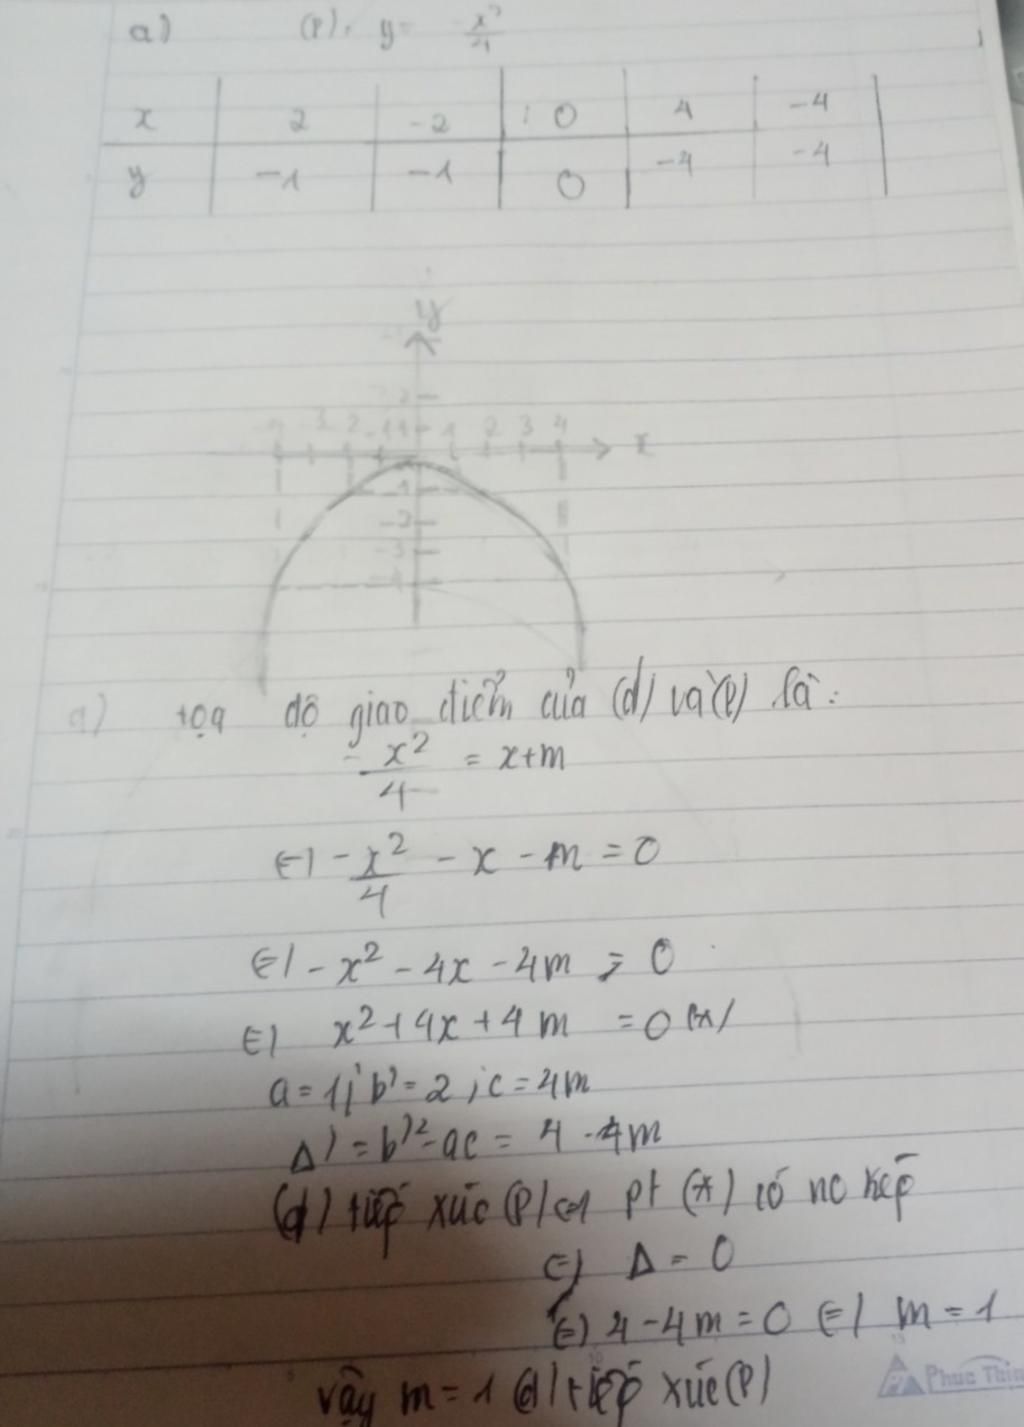 a) (P): y = -x²/4
x 2 -2 0 4 -4
y -1 -1 0 -4 -4
y
2
-4 3 2 -1 1 1 2 3 4 x
-1
-2
-3
-4
a) tọa độ giao điểm của (d) và (P) là:
-x²/4 = x+m
⇔ -x²/4 - x - m = 0
⇔ -x² - 4x - 4m = 0
⇔ x² + 4x + 4m = 0 (*)
a = 1; b' = 2; c = 4m
Δ' = b'² - ac = 4 - 4m
(d) tiếp xúc (P) ⇔ pt (*) có no kép
⇔ Δ = 0
⇔ 4 - 4m = 0 ⇔ m = 1
vậy m = 1 (d) tiếp xúc (P)